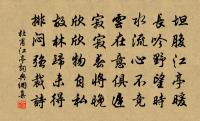 坦腹江亭暖
長吟野望時
水流心不競
雲在意俱遲
寂寂春將晚
欣欣物自私
故林歸未得
排悶強裁詩
杜甫江亭詞典網集